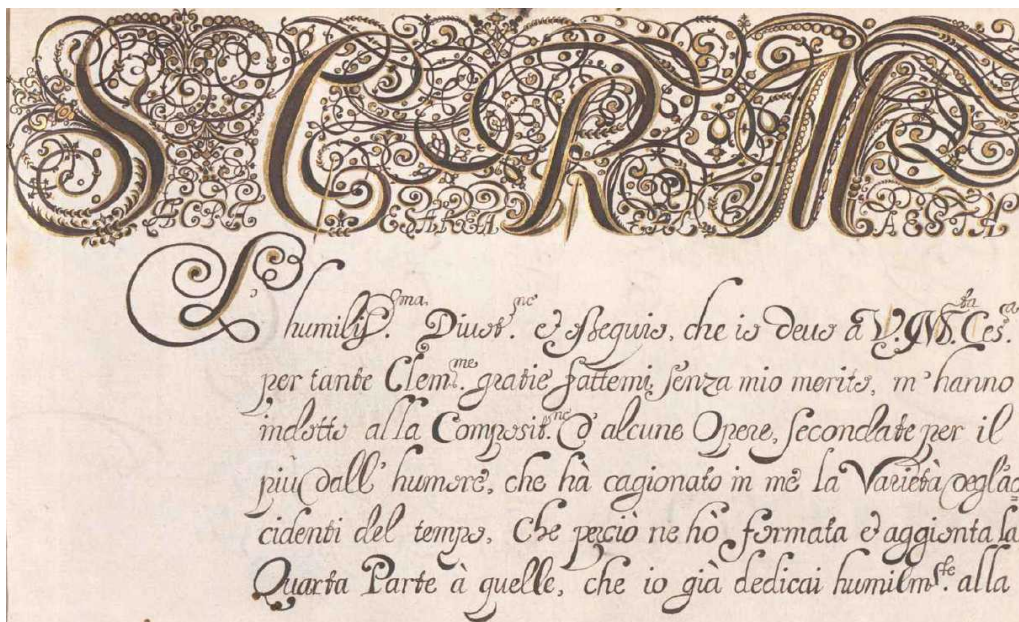 SACRA CESAREA REAL MAESTA
L'humiliss.ma Diuot.ne et osseguio, che io deuo a V. M.tà Ces.a
per tante Clem.me gratie fattemi, senza mio merito, m'hanno
indotto alla Composit.ne d'alcune Opere, secondate per il
più dall'humore, che hà cagionato in me la Varietà degl'ac=
cidenti del tempo, Che perciò ne hò formata et aggionta la
Quarta Parte à quelle, che io già dedicai humilm.te alla